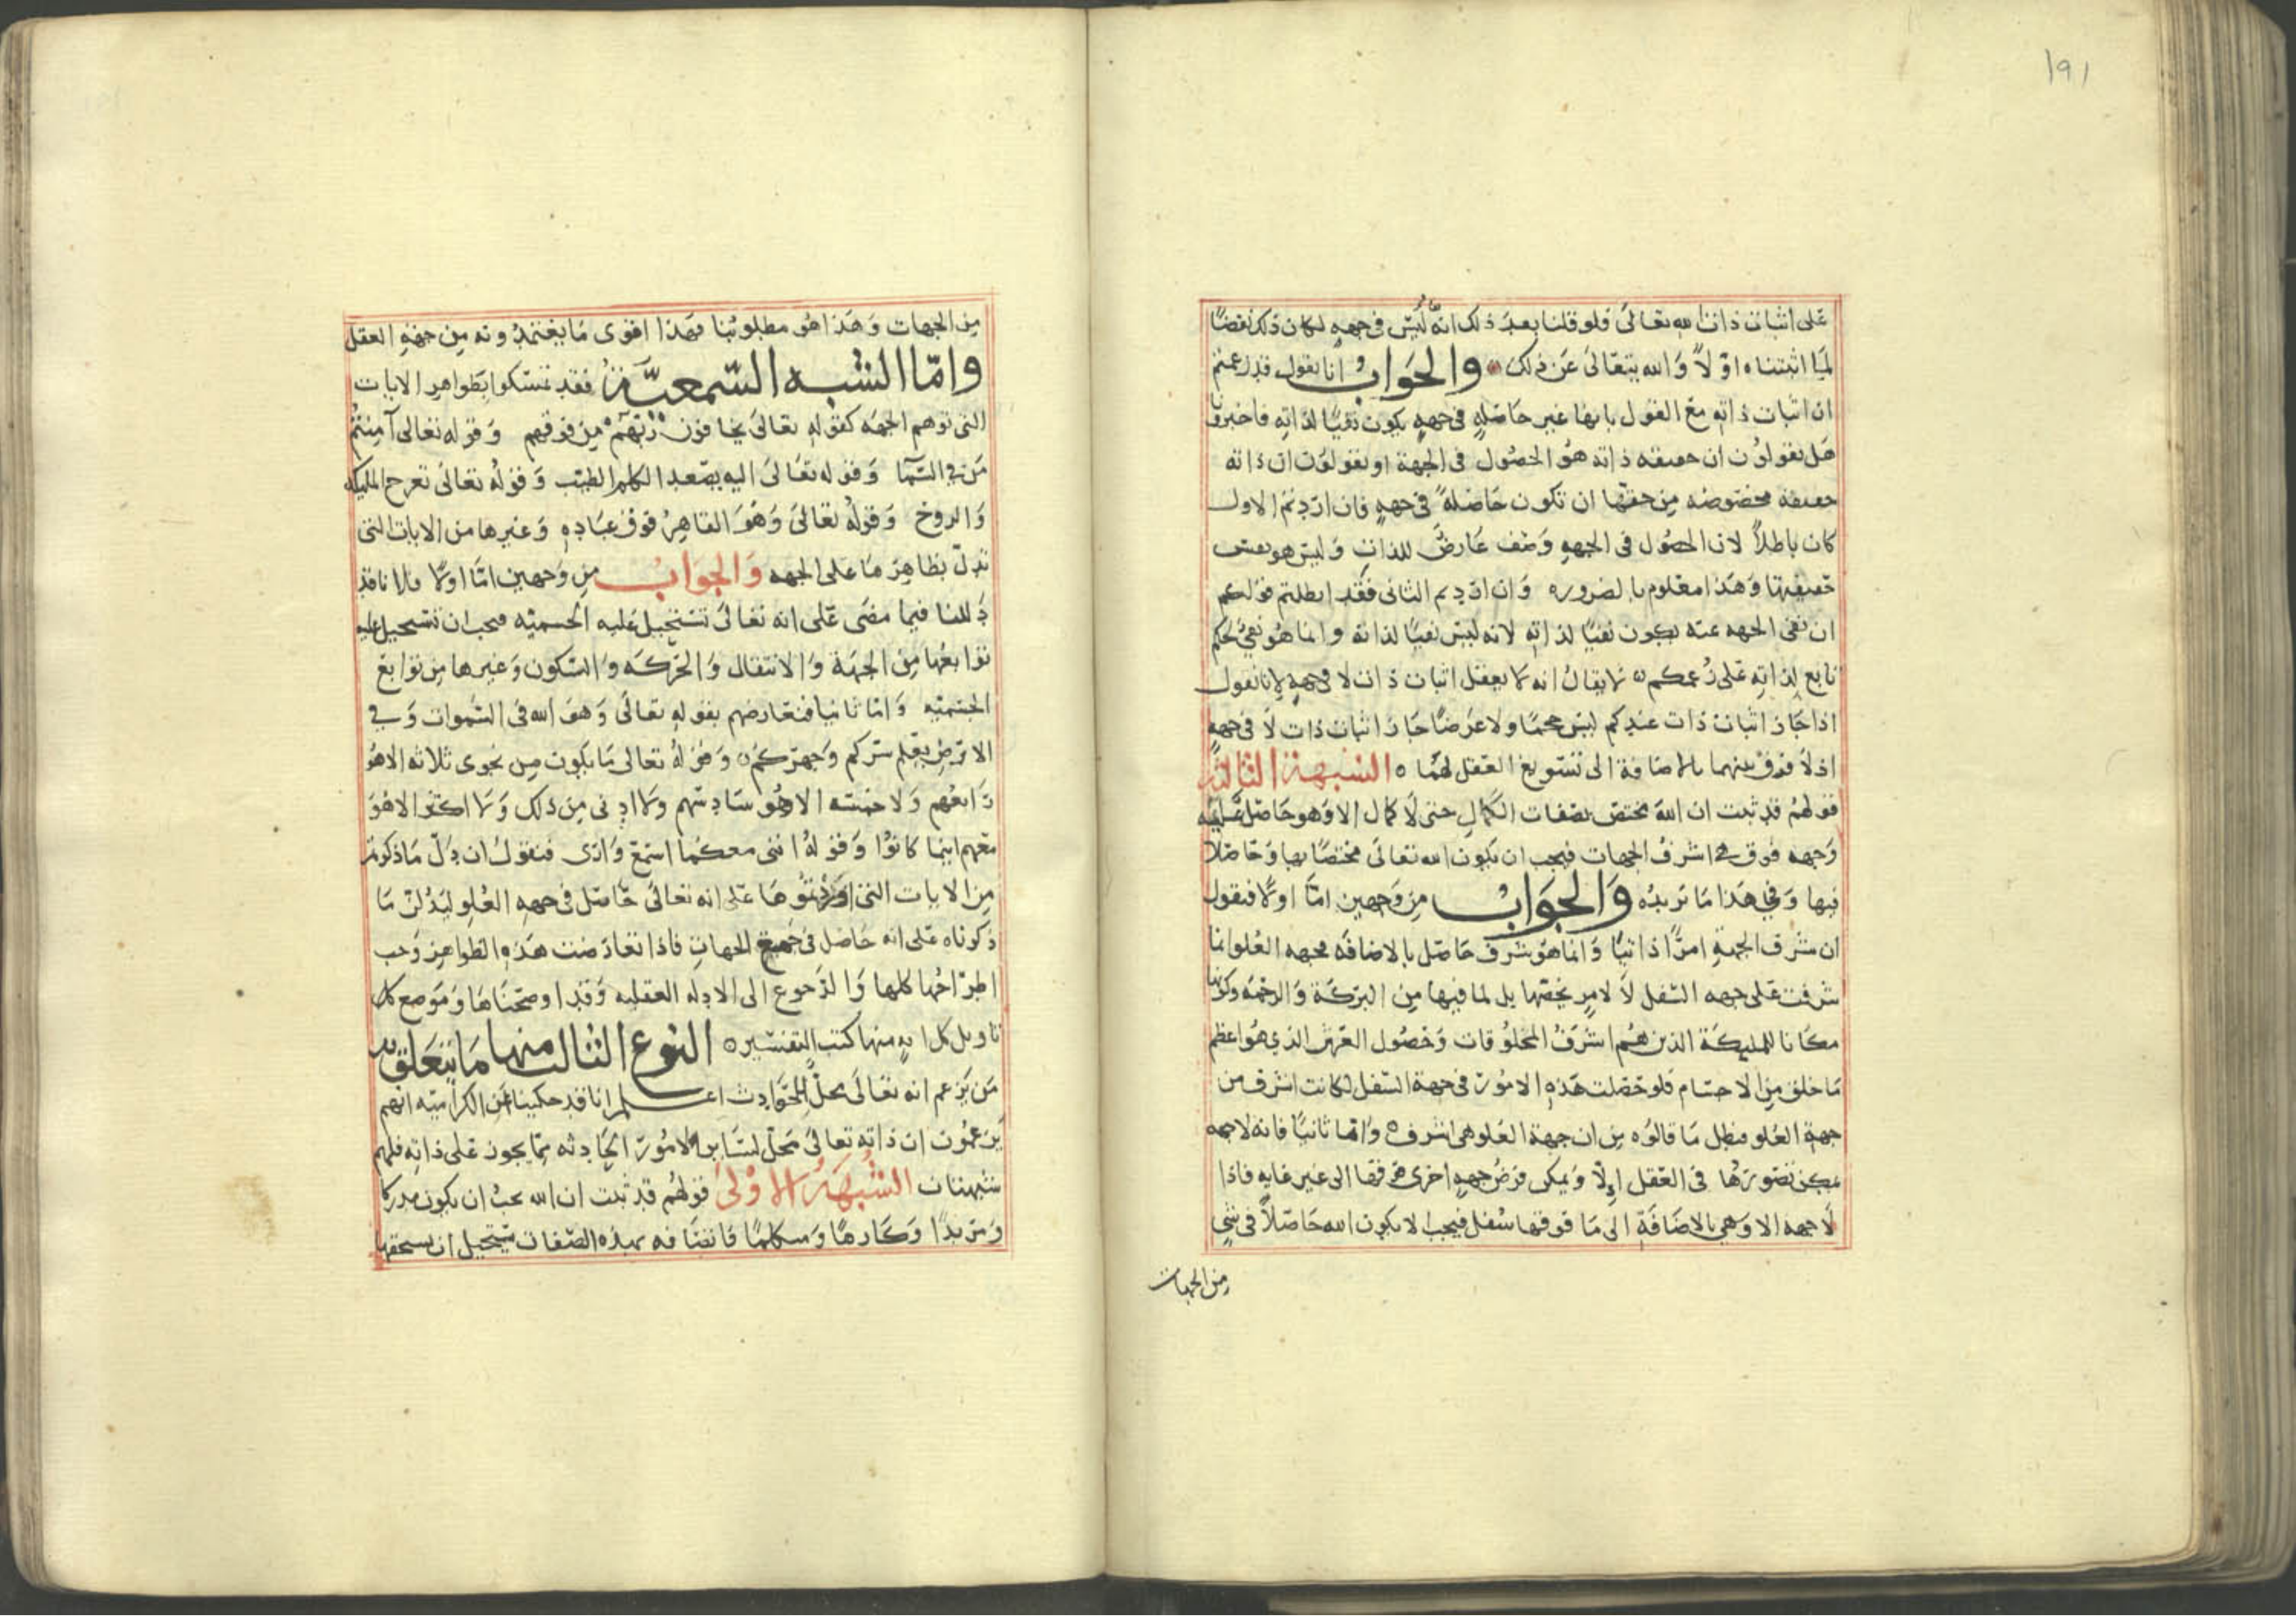 ١٩١
على اثبات ذات الله تعالى فلو قلنا بعد ذلك انه ليس فى جهه لكان ذلك نقضًا
لما اثبتناه اوّلاً والله يتعالى عن ذلك والجواب انا نقول قد زعمتم
ان اثبات ذاته مع القول بانها غير حاصله فى جهه يكون نفيًا لذاته فاخبرونا
هل تقولون ان حقيقه ذاته هو الحصول فى الجهة او تقولون ان ذاته
حقيقه مخصوصه من حقها ان تكون حاصلةً فى جهه فان اردتم الاول
كان باطلاً لان الحصول فى الجهه وصف عارض للذات وليس هو نفس
حقيقتها وهذا معلوم بالضروره وان اردتم الثانى فقد ابطلتم قولكم
ان نفى الجهه عنه يكون نفيًا لذاته لانه ليس نفيًا لذاته وانما هو نفى لحكم
تابع لذاته على زعمكم لا يقال انه لا يعقل اثبات ذات لا فى جهه لانا نقول
اذا جاز اثبات ذات عندكم ليس حجمًا ولا عرضًا جاز اثبات ذات لا فى جهه
اذ لا فرق بينهما بالاضافة الى تسويغ العقل لهما ه الشبهة الثالثة
قولهم قد ثبت ان الله مختص بصفات الكمال حتى لا كمال الا وهو حاصل عليه
وجهه فوق هى اشرف الجهات فيجب ان يكون الله تعالى مختصًا بها وحاصلا
فيها وفى هذا ما نريده والجواب من وجهين امّا اولًا فنقول
ان شرف الجهة امرًا ذاتيًا وانما هو شرف حاصل بالاضافه فجهه العلو انما
شرفت على جهه السفل لا لامر يخصها بل لما فيها من البركة والرحمه وكونها
مكانا للمليكة الذين هم اشرف المخلوقات وحصول العرش الذي هو اعظم
ما خلق من الاجسام فلو حصلت هذه الامور فى جهة السفل لكانت اشرف من
جهة العلو فبطل ما قالوه من ان جهة العلو هى اشرف ه وامّا ثانيًا فانه لا جهه
يمكن تصورها فى العقل الّا ويمكن فرض جهه اخرى فوقها الى غير غايه فاذا
لا جهه الا وهى بالاضافة الى ما فوقها سفل فيجب الا يكون الله حاصلاً فى شي
من الجهات
من الجهات وهذا هو مطلوبنا فهذا اقوى ما يعتمدونه من جهه العقل
وامّا الشبه السّمعيّة فقد تمسّكوا بظواهر الايات
التى توهم الجهه كقوله تعالى يخافون ربّهم من فوقهم وقوله تعالى آمنتم
من فى السّمآ وقوله تعالى اليه يصعد الكلم الطيب وقوله تعالى تعرج المليكه
والروح وقوله تعالى وهو القاهر فوق عباده وغيرها من الايات التى
تدلّ بظاهرها على الجهه والجواب من وجهين امّا اولًا فلانا قد
دللنا فيما مضى على انه تعالى تستحيل عليه الجسميّه فيجب ان تستحيل عليه
توابعها من الجهة والانتقال والحركه والسكون وغيرها من توابع
الجسميّه وامّا ثانيا فنعارضهم بقوله تعالى وهو الله فى السّموات وفى
الارض يعلم سركم وجهركم وقوله تعالى ما يكون من نجوى ثلاثه الا هو
رابعهم ولا خمسه الا هو سادسهم ولا ادنى من ذلك ولا اكثر الا هو
معهم اينما كانوا وقوله اننى معكما اسمع وارى فنقول ان دلّ ما ذكرتم
من الايات التى اوردتموها على انه تعالى حاصل فى جهه العلو ليدلنّ ما
ذكرناه على انه حاصل فى جميع الجهات فاذا تعارضت هذه الظواهر وجب
اطراحها كلها والرجوع الى الادله العقليه وقد اوضحناها وموضع كل
تاويل كل ايه منها كتب التفسير ه النوع الثالث منها ما يتعلق بـ
من يزعم انه تعالى محلّ للحوادث اعلم انا قد حكينا عن الكراميّه انهم
يزعمون ان ذاته تعالى محلّ لساير الامور الحادثه مما يجوز على ذاته فلهم
شبهتان الشبهة الاولى قولهم قد ثبت ان الله يجب ان يكون مدركا
ومريدًا وكارهًا ومتكلمًا فاتصافه بهذه الصفات يستحيل ان يستحقها